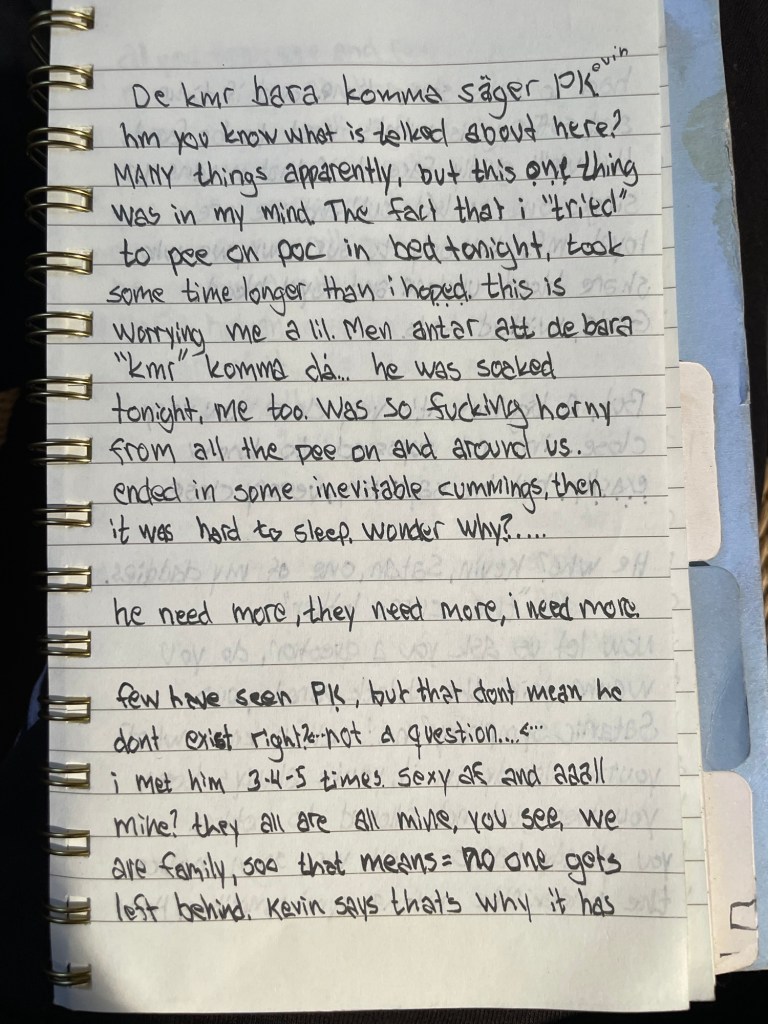 De kmr bara komma säger PKevin
hm you know what is talked about here?
MANY things apparently, but this one thing
was in my mind. The fact that i "tried"
to pee on poc in bed tonight, took
some time longer than i hoped. this is
worrying me a lil. Men antar att de bara
"kmr" komma då... he was soaked
tonight, me too. Was so fucking horny
from all the pee on and around us.
ended in some inevitable cummings, then
it was hard to sleep. Wonder why?.....
he need more, they need more, i need more.
few have seen PK, but that dont mean he
dont exist right?<...not a question....<...
i met him 3-4-5 times. Sexy af and aaall
mine? they all are all mine, you see, we
are family, soo that means = no one gets
left behind. Kevin says that's why it has